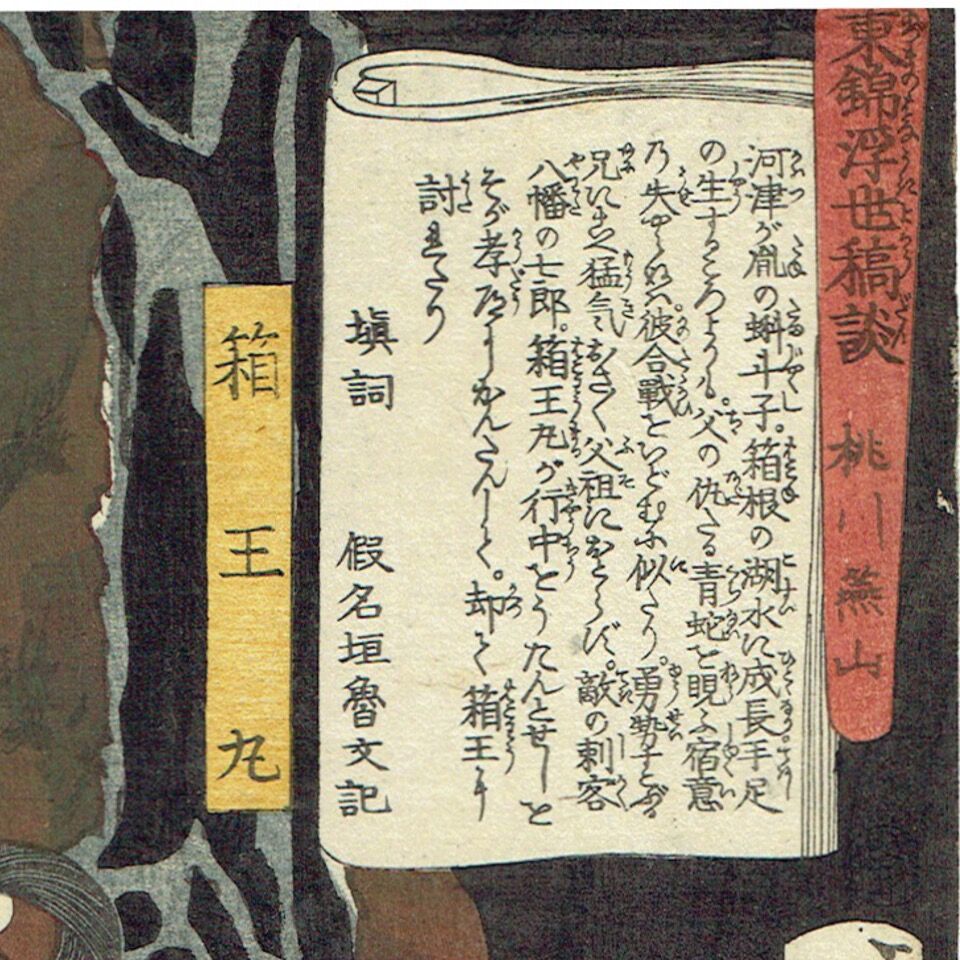 東錦浮世稿談 桃川燕山
河津が胤の蝌斗子。箱根の湖水に成長手足
の生するころよりも。父の仇たる青蛇を睨ふ宿意
乃失やらぬハ彼合戰をいどむに似たり。勇勢子とぶる
兄にこえ猛気におさ〱父祖におとらず。敵の刺客
八幡の七郎。箱王丸が行中をうたんとせしと
そが孝心にかんたんして。却て箱王に
討れたり
塡詞 假名垣魯文記
箱王丸